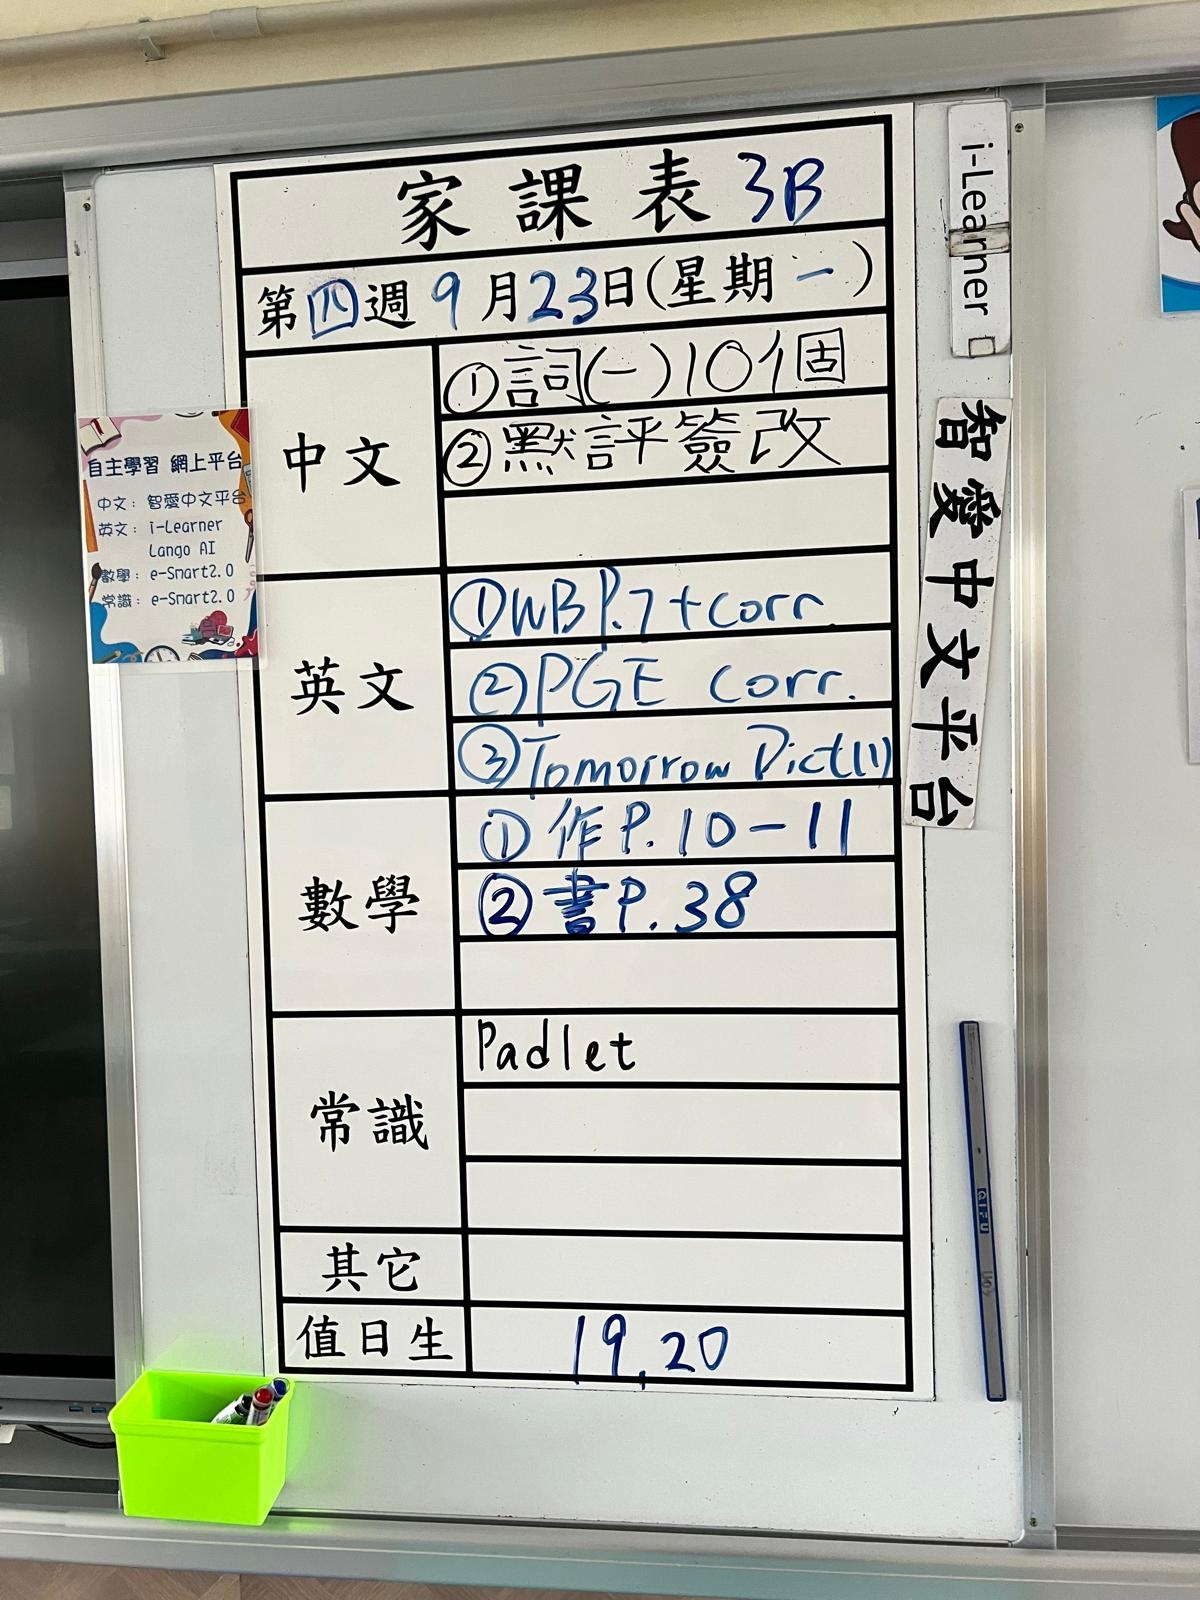 家課表 3B
第四週9月23日(星期一)
中文
①詞(一)10個
②默評簽改
英文
①WB P.7+corr.
②PGE corr.
③Tomorrow Dict(1)
數學
①作P.10-11
②書P.38
常識
Padlet
其它
值日生
19,20
自主學習 網上平台
中文：智愛中文平台
英文：i-Learner
Lango AI
數學：e-Smart2.0
常識：e-Smart2.0
i-Learner
智愛中文平台
QIFU